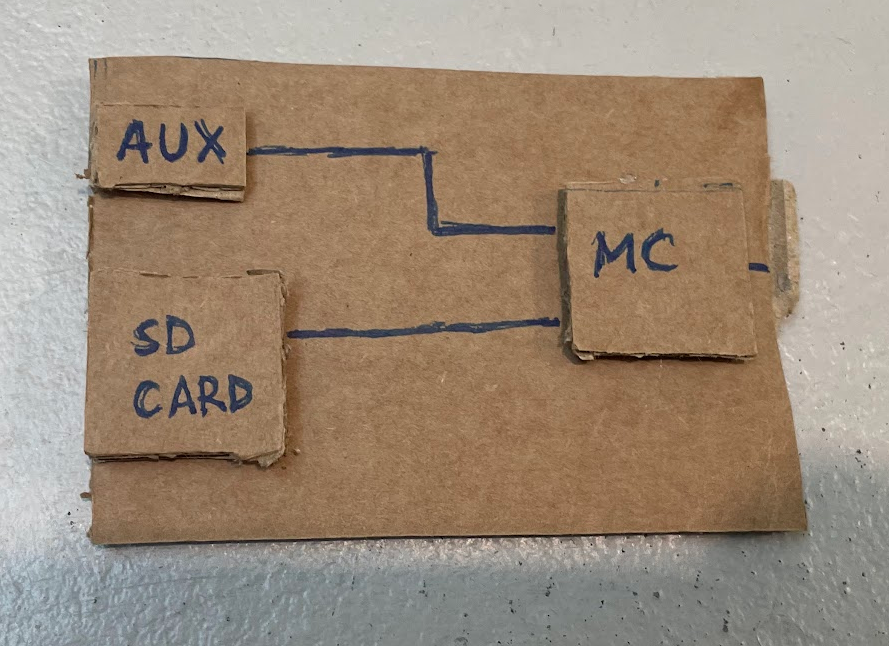 AUX
MC
SD
CARD